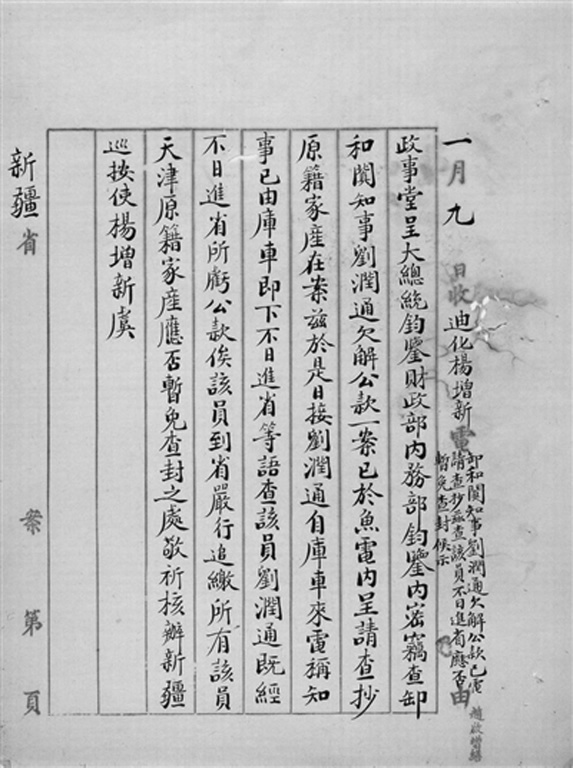 一月九日收迪化楊增新電
卸和闐知事劉潤通欠解公款已電
請查抄茲查該員不日進省應否
暫免查封候示
由
政事堂呈大總統鈞鑒財政部內務部鈞鑒內密竊查卸
和闐知事劉潤通欠解公款一案已於魚電內呈請查抄
原籍家產在案茲於是日接劉潤通自庫車來電稱知
事已由庫車即下不日進省等語查該員劉潤通既經
不日進省所虧公款俟該員到省嚴行追繳所有該員
天津原籍家產應否暫免查封之處敬祈核辦新疆
巡按使楊增新虞
新疆省
案
第
頁